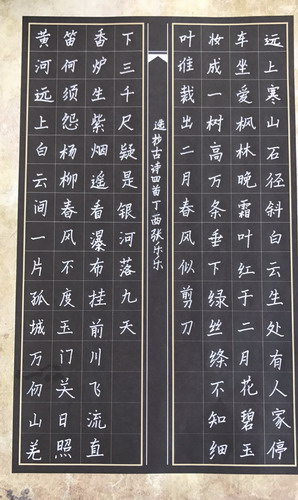 远上寒山石径斜白云生处有人家停
车坐爱枫林晚霜叶红于二月花碧玉
妆成一树高万条垂下绿丝绦不知细
叶谁裁出二月春风似剪刀
黄河远上白云间一片孤城万仞山羌
笛何须怨杨柳春风不度玉门关日照
香炉生紫烟遥看瀑布挂前川飞流直
下三千尺疑是银河落九天
选抄古诗四首丁酉张乐乐